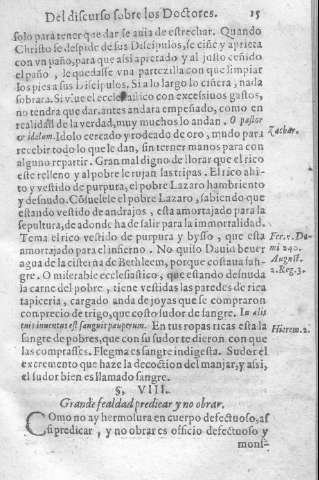 Del discurso sobre los Doctores. 15
solo para tener que dar se auia de estrechar. Quando
Christo se despide de sus Discipulos, se ciñe y aprieta
con vn paño, para que assi apretado y al justo ceñido
el paño, le quedasse vna partezilla con que limpiar
los pies a sus Discipulos. Si a lo largo lo ciñera, nada
sobrara. Si viue el ecclesiastico con excessiuos gastos,
no tendra que dar. antes andara empeñado, como en
realidad de la verdad, muy muchos lo andan. O pastor
& idolum. Idolo cercado y rodeado de oro, mudo para
Zachar.
recebir todo lo que le dan, sin tener manos para con
alguno repartir. Gran mal digno de llorar que el rico
este relleno y al pobre le rujan las tripas. El rico ahi-
to y vestido de purpura, el pobre Lazaro hambriento
y desnudo. Cōsuelese el pobre Lazaro, sabiendo que
estando vestido de andrajos, esta amortajado para la
sepultura, de adonde ha de salir para la immortalidad.
Tema el rico vestido de purpura y bysso, que esta
Fer. v. Da-
amortajado para el infierno. No quiso Dauid beuer
mi 240.
agua de la cisterna de Bethleem, porque costaua san-
August.
gre. O miserable ecclesiastico, que estando desnuda
2. Reg. 3.
la carne del pobre, tiene vestidas las paredes de rica
tapiceria, cargado anda de joyas que se compraron
con precio de trigo, que costo sudor de sangre. In alis
tuis inuentus est sanguis pauperum. En tus ropas ricas esta la
Hierem. 2.
sangre de pobres, que con su sudor te dieron con que
las comprasses. Flegma es sangre indigesta. Sudor el
excremento que haze la decoction del manjar, y assi,
el sudor bien es llamado sangre.
§. VIII.
Grande fealdad predicar y no obrar.
Como no ay hermosura en cuerpo defectuoso, as
si predicar, y no obrar es officio defectuoso y
mons-